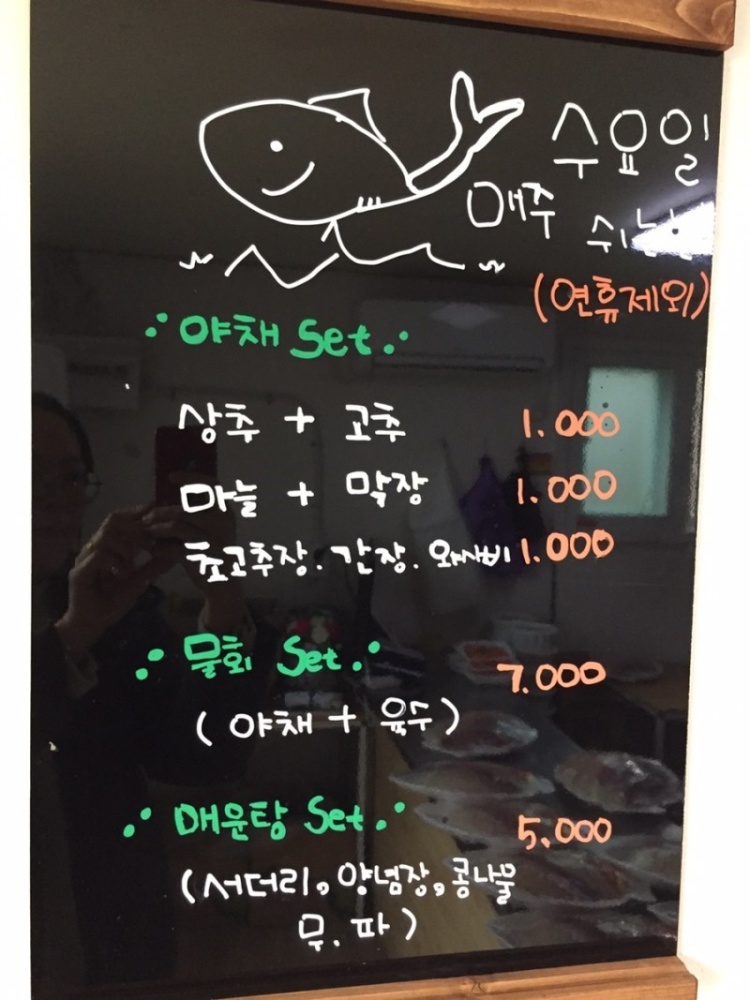 수요일
매주
(연휴제외)
야채 Set
상추 + 고추 1.000
마늘 + 막장 1.000
초고추장. 간장. 와사비 1.000
물회 Set 7.000
(야채 + 육수)
매운탕 Set 5.000
(서더리, 양념장, 콩나물
무. 파)